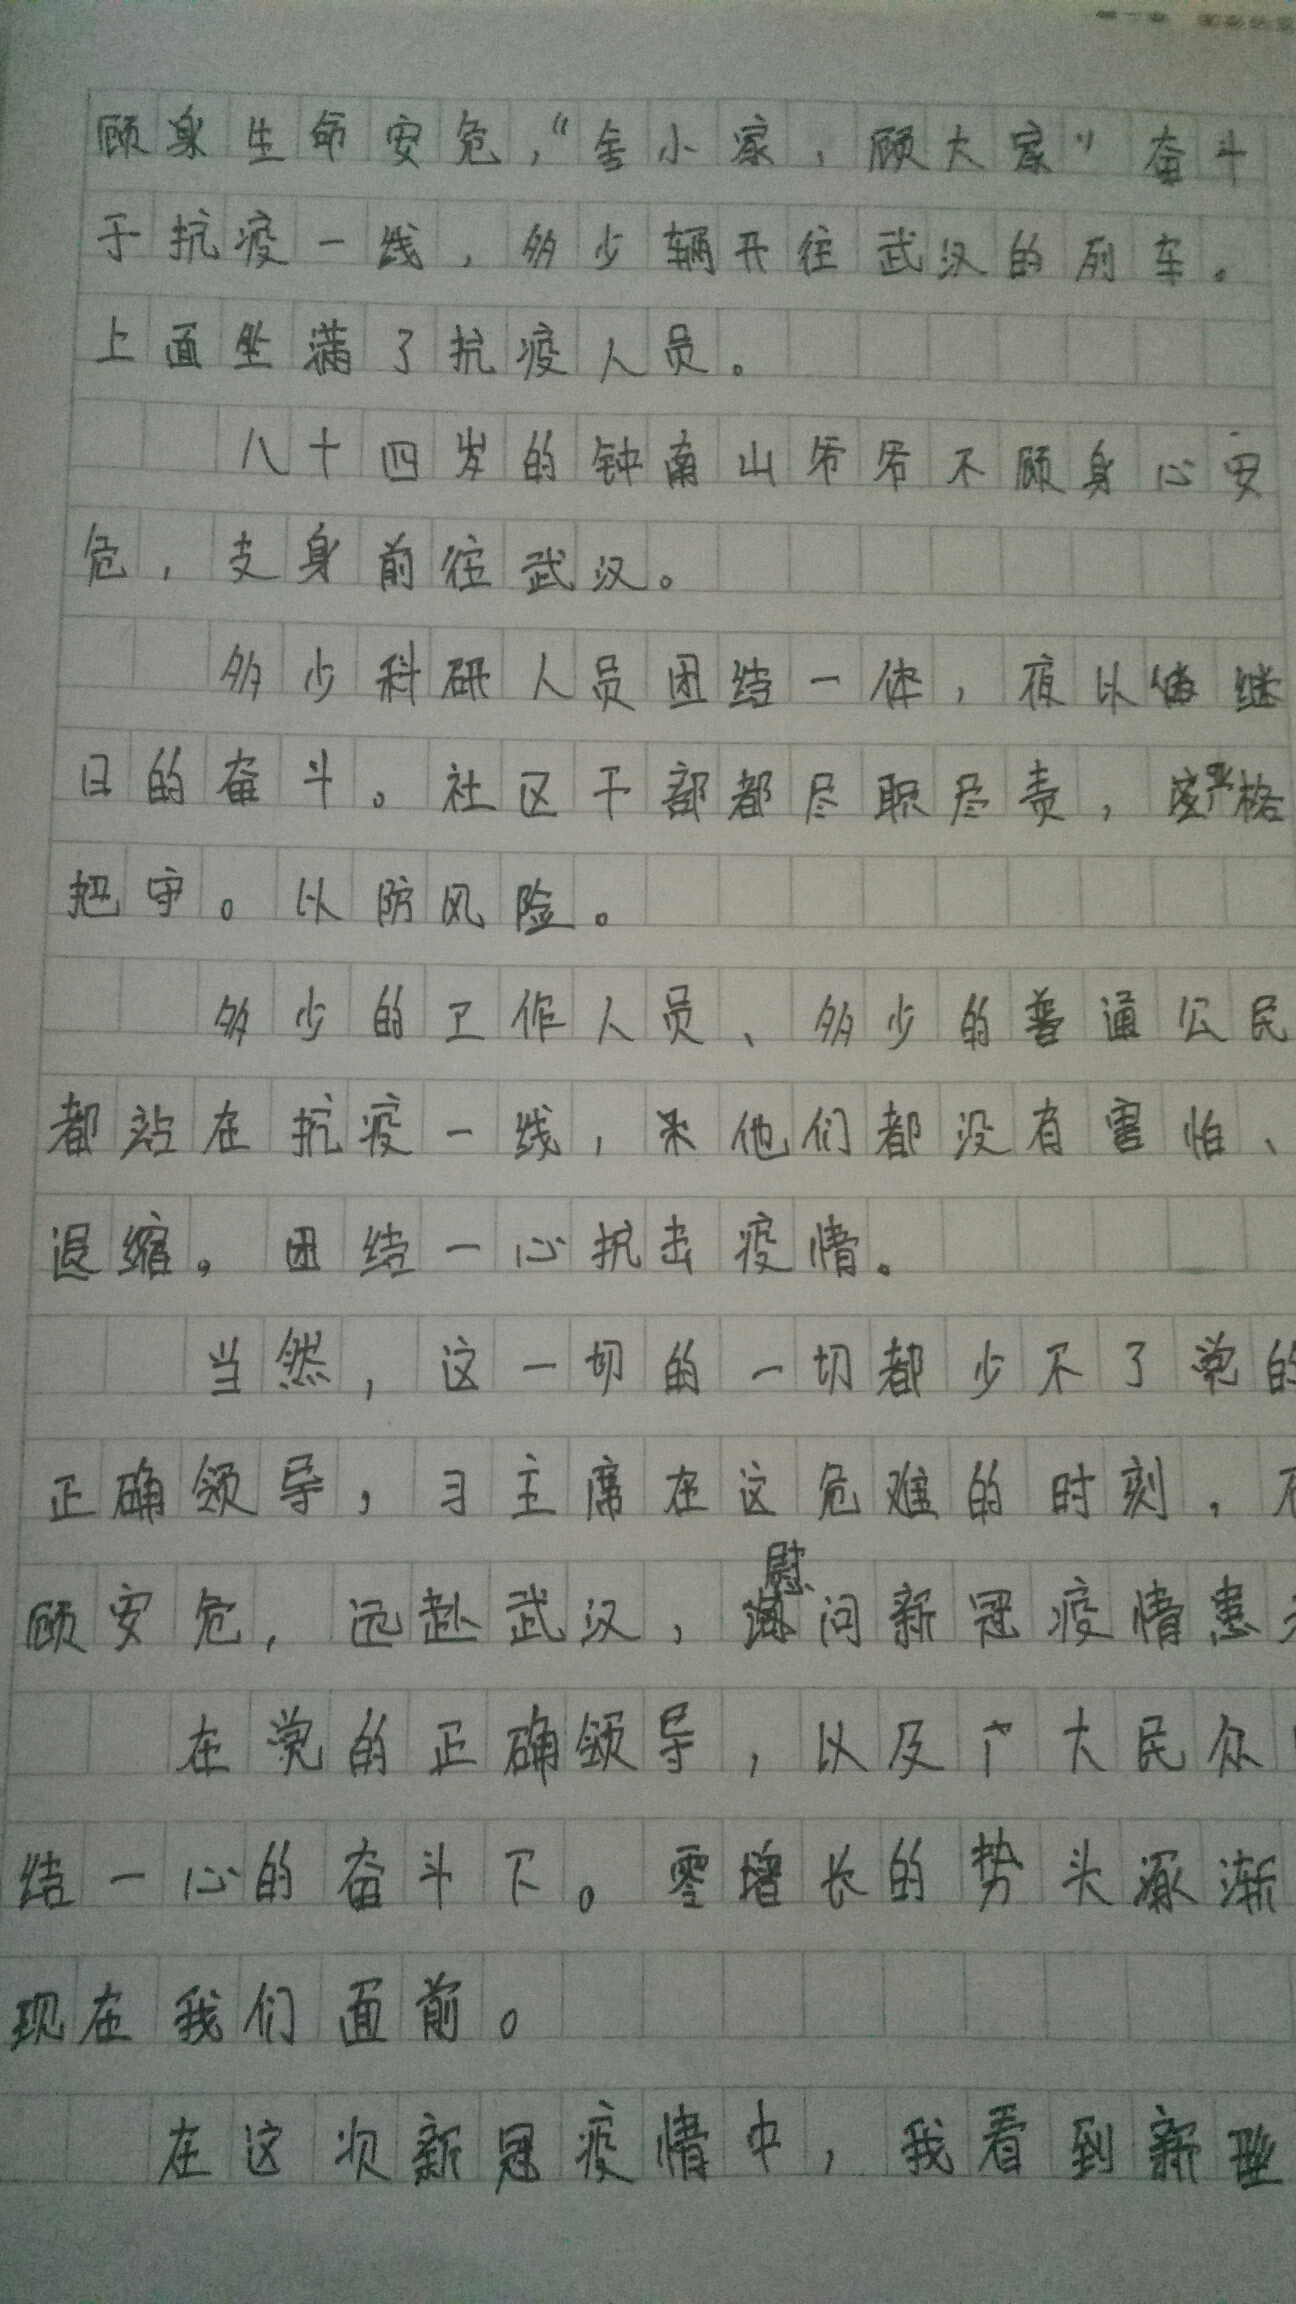 顾身生命安危，“舍小家，顾大家”奋斗
于抗疫一线，多少辆开往武汉的列车。
上面坐满了抗疫人员。
八十四岁的钟南山爷爷不顾身心安
危，支身前往武汉。
多少科研人员团结一体，夜以继
日的奋斗。社区干部都尽职尽责，严格
把守。以防风险。
多少的工作人员、多少的普通公民
都站在抗疫一线，他们都没有害怕、
退缩。团结一心抗击疫情。
当然，这一切的一切都少不了党的
正确领导，习主席在这危难的时刻，不
顾安危，远赴武汉，慰问新冠疫情患
在党的正确领导，以及广大民众
结一心的奋斗下。零增长的势头逐渐
现在我们面前。
在这次新冠疫情中，我看到新型